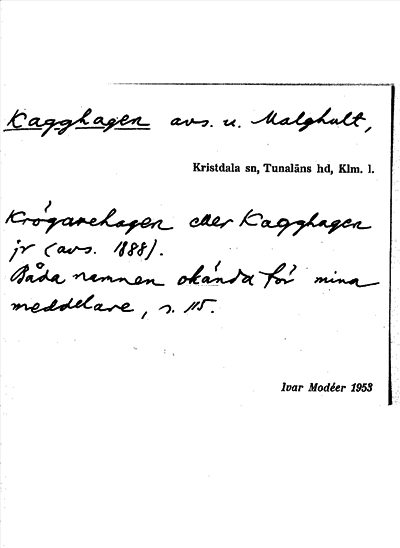 Kagghagen avs. u. Malghult,
Kristdala sn, Tunaläns hd, Klm. l.
Krógarehagen eller Kagghagen
jr (avs. 1888).
Båda namnen okända för mina
meddelare, s. 115.
Ivar Modéer 1953